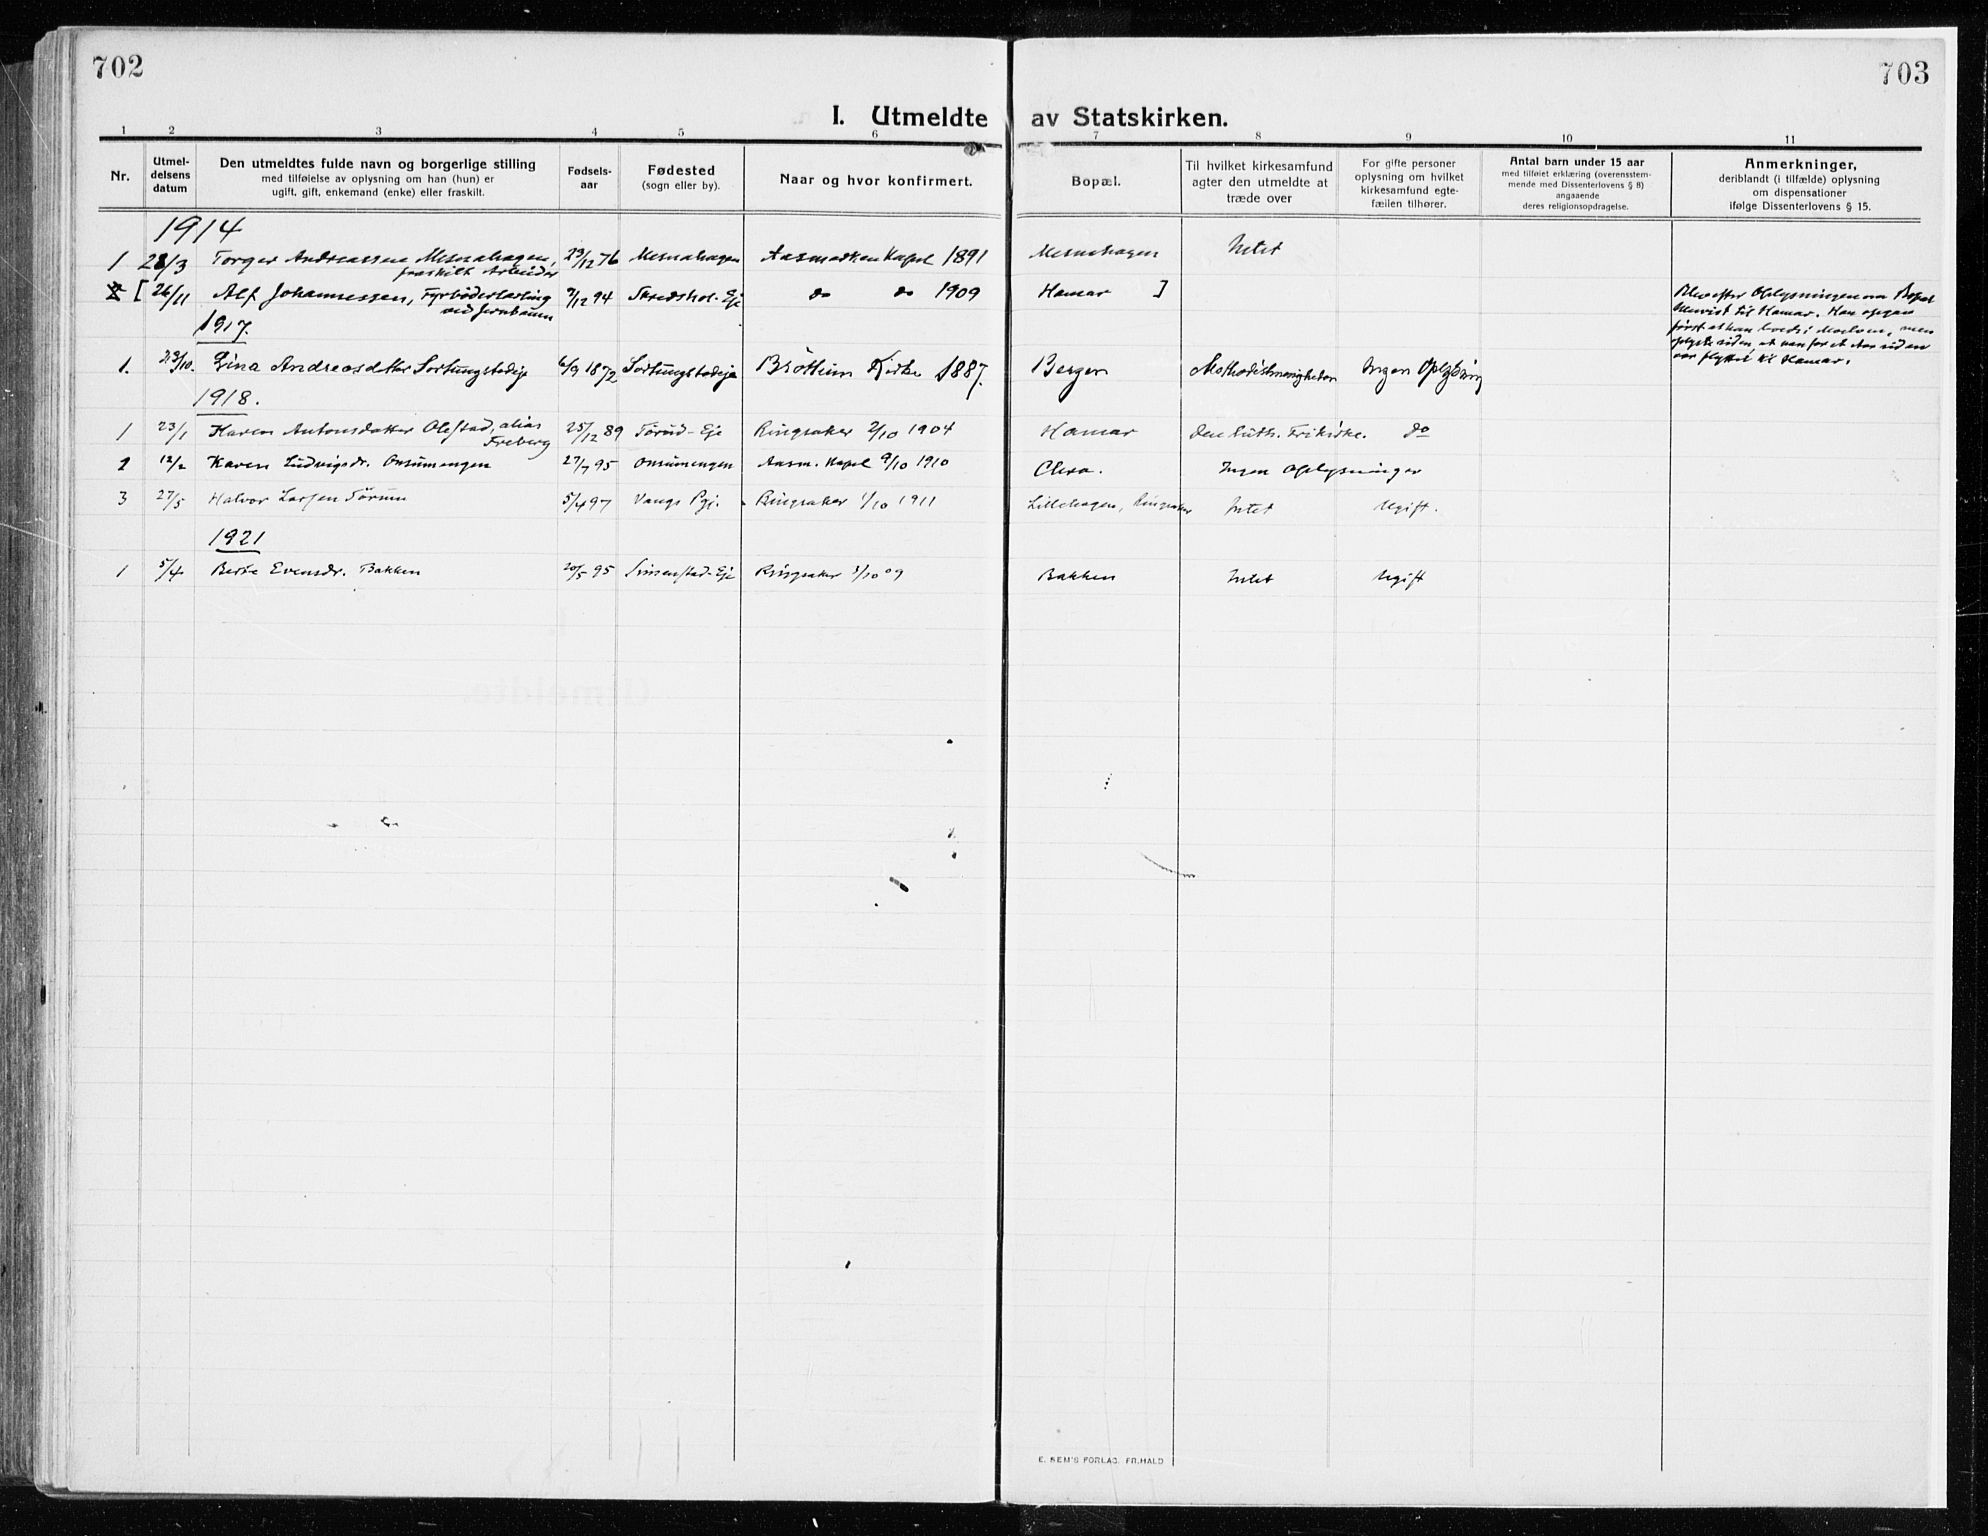 702
703
I. Utmeldte av Statskirken.
1 2 3 4 5 6 7 8 9 10 11
Nr.
Utmel-
delsens
datum
Den utmeldtes fulde navn og borgerlige stilling
med tilføielse av oplysning om han (hun) er
ugift, gift, enkemand (enke) eller fraskilt.
Fødsels-
aar
Fødested
(sogn eller by).
Naar og hvor konfirmert.
Bopæl.
Til hvilket kirkesamfund
agter den utmeldte at
træde over
For gifte personer
oplysning om hvilket
kirkesamfund egte-
fællen tilhører.
Antal barn under 15 aar
med tilføiet erklæring (overensstem-
mende med Dissenterlovens § 8)
angaaende
deres religionsopdragelse.
Anmerkninger,
deriblandt (i tilfælde) oplysning
om dispensationer
ifølge Dissenterlovens § 15.
1914
1 28/3 Torger Andreassen Mesnahagen, 29/12 76 Mesnahagen Aasmarken Kapel 1891 Mesnahagen Intet
fraskilt Arbeider
[ 26/11 Alf Johannessen, Fyrbøderlærling 9/12 94 Skredshol-Eje do do 1909 Hamar ]
ved Jernbanen
Blev efter Oplysningen om Bopæl
henvist til Hamar. Han opgav
først at han boede i Moelven, men
oplyste siden, at han for et Aar siden
var flyttet til Hamar.
1917.
1. 23/10. Lina Andreasdatter Sortungstadeje 6/9 1872 Sortungstadeje Brøttum Kirke 1887. Bergen Methodistmenigheden Ingen Oplysning
1918.
1 23/1 Karen Antonsdatter Olestad, alias 25/12 89 Tørud-Eje Ringsaker 2/10 1904 Hamar Den luth. Frikirke. do
Freberg
2 12/2 Karen Ludvigsdr. Onsumengen 27/7 95 Onsumengen Aasm. Kapel 9/10 1910 Ingen Oplysninger
3 27/5 Halvor Larsen Sørum 5/4 97 Vangs Pgj. Ringsaker 1/10 1911 Lillehagen, Ringsaker Intet Ugift.
1921
1 5/4 Berte Evensdr. Bakken 20/5 95 Simenstad-Eje Ringsaker 3/10 09 Bakken Intet Ugift
E. SEM'S FORLAG, FR.HALD